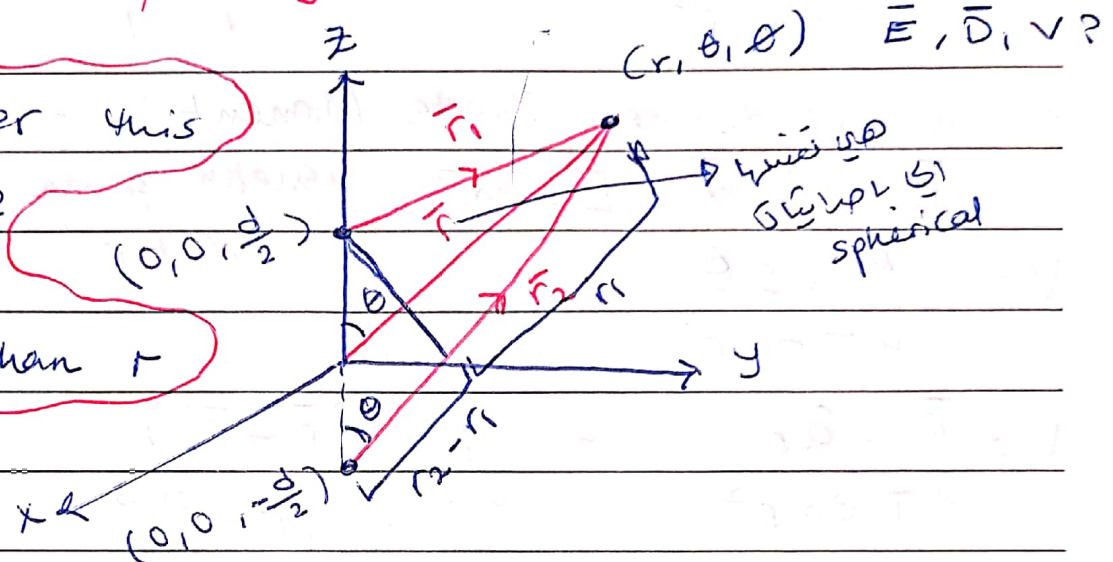 z
(r, θ, ø) E̅, D̅, V?
er this
r̅₁
هي نفسها
r̅
spherical
(0,0,d/2)
θ
r̅₂
r₁
han r
y
θ
r₂-r₁
x
(0,0,-d/2)